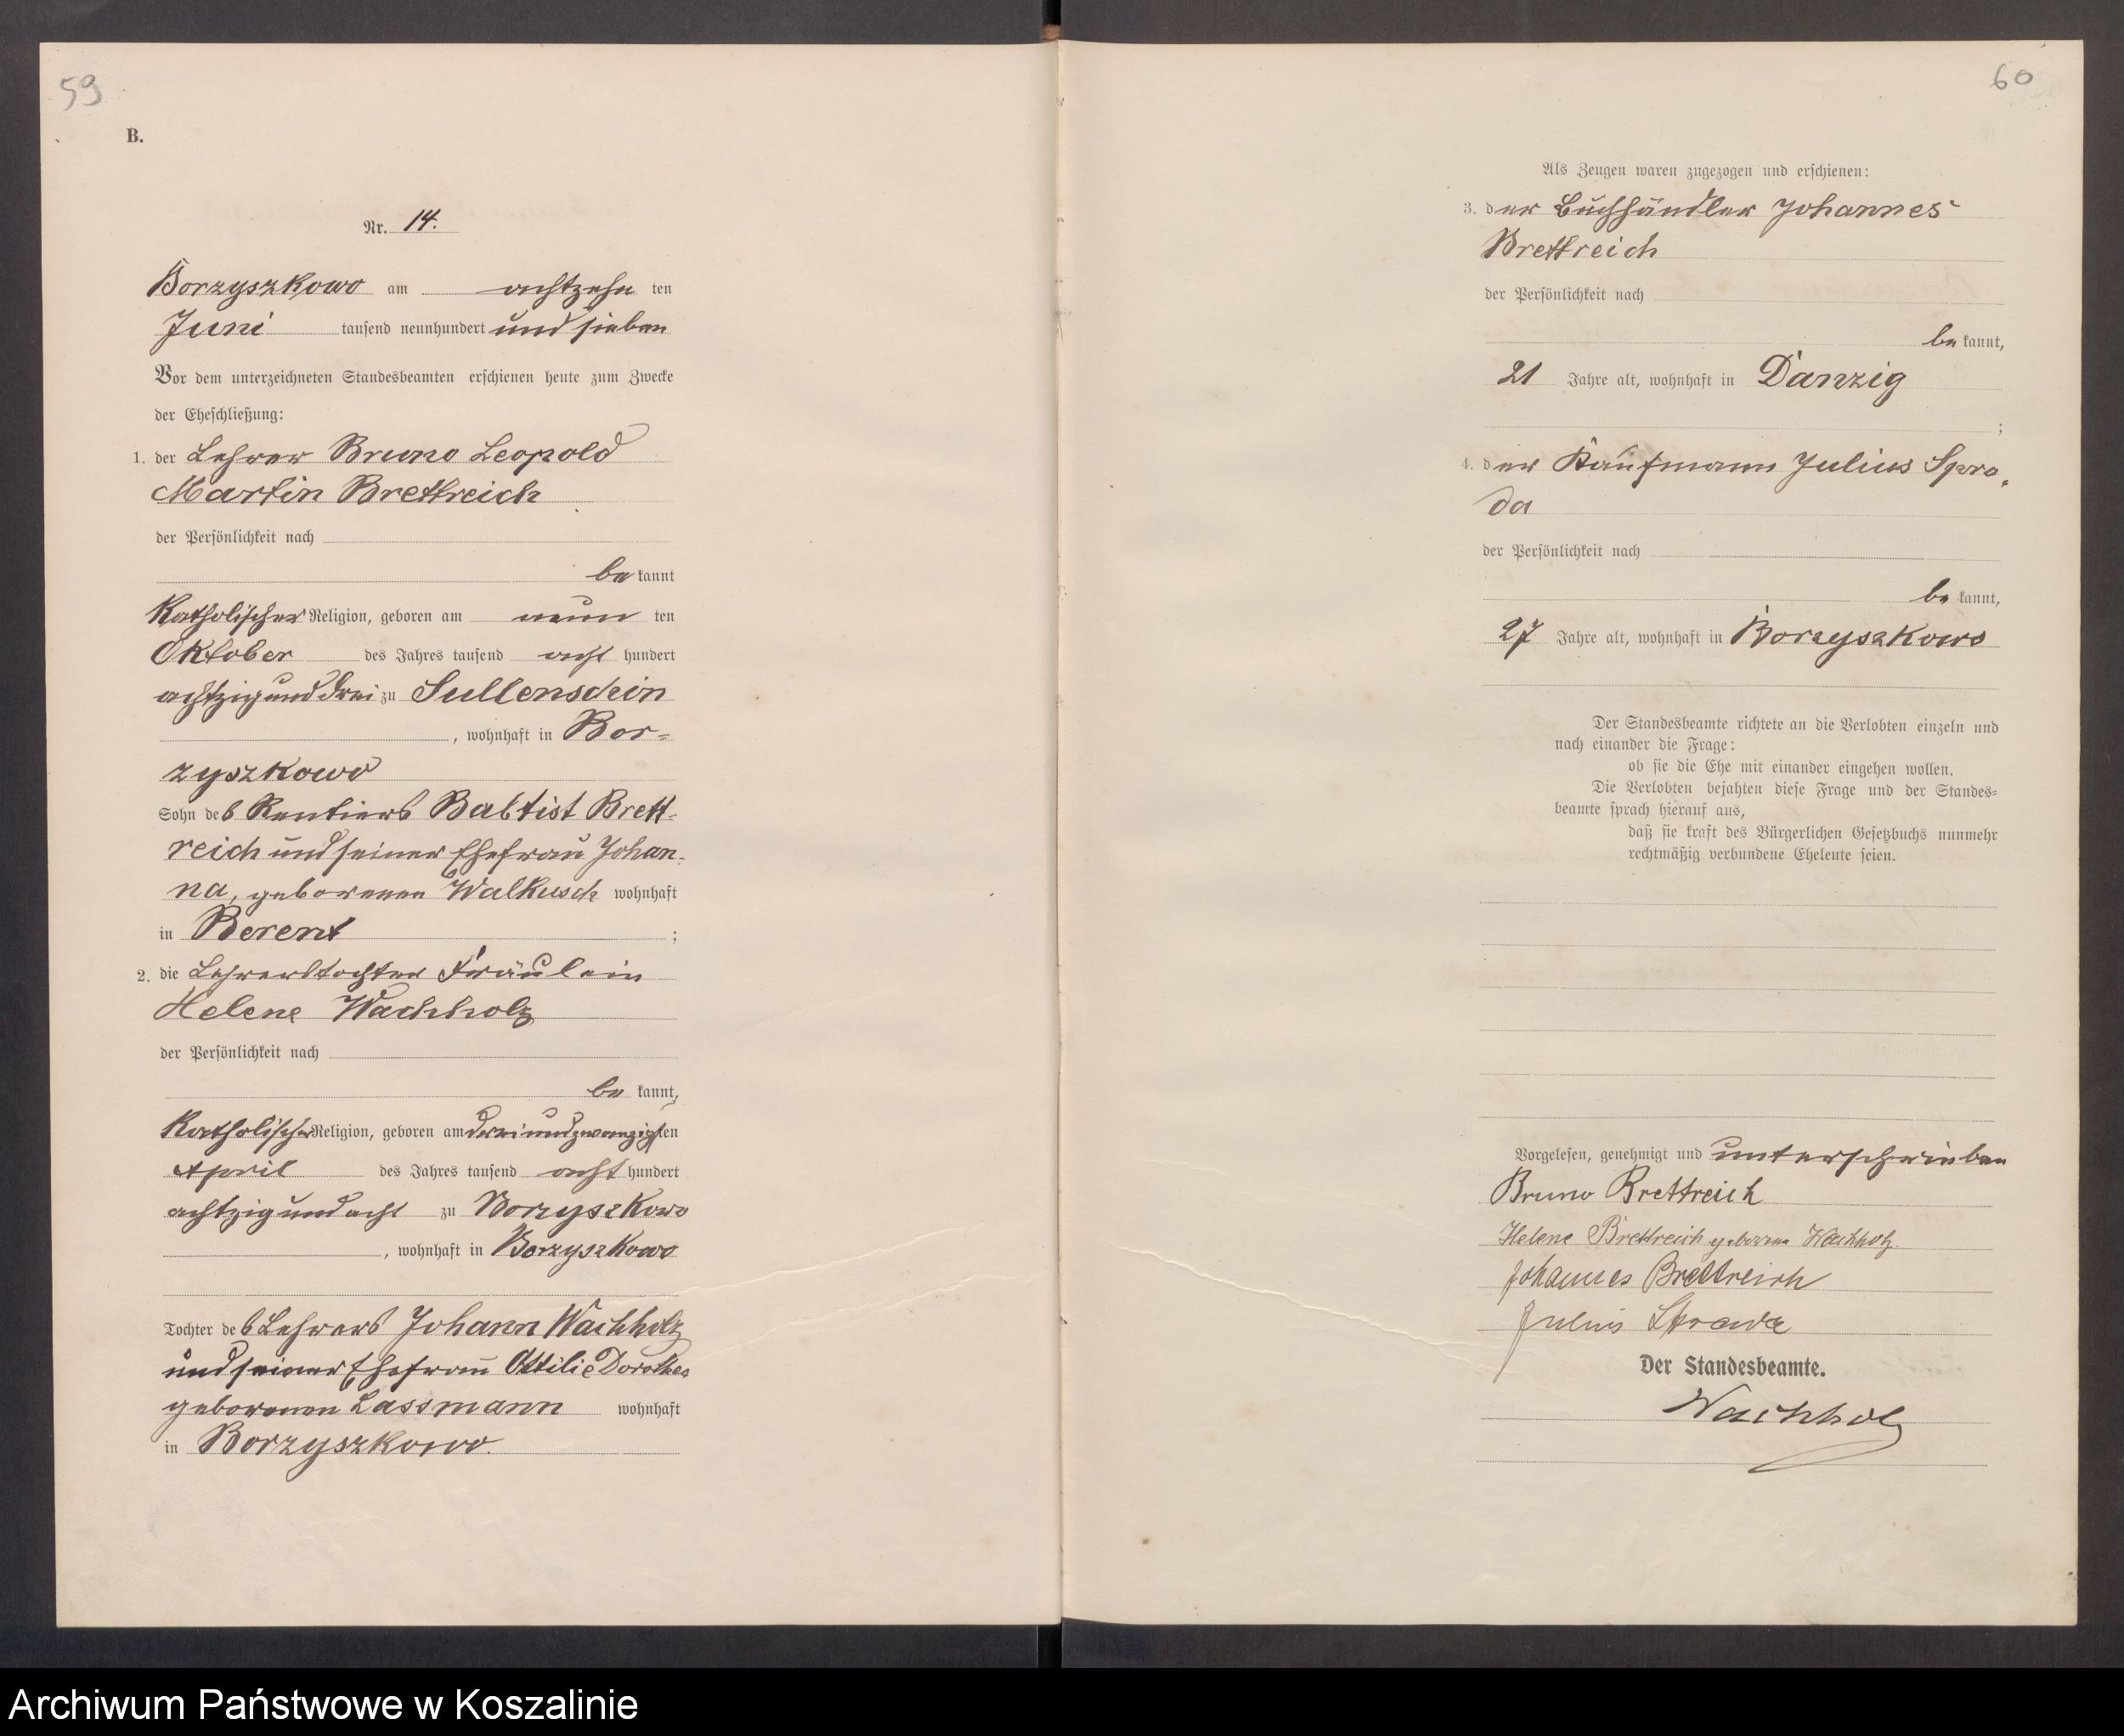 59
B.
Nr. 14.
Borzyszkowo am achtzehn ten
Juni tausend neunhundert und sieben
Vor dem unterzeichneten Standesbeamten erschienen heute zum Zwecke
der Eheschließung:
1. der Lehrer Bruno Leopold
Martin Brettreich
der Persönlichkeit nach
be kannt
Katholischer Religion, geboren am neun ten
Oktober des Jahres tausend acht hundert
achtzig und drei zu Sullenschin
, wohnhaft in Bor-
zyszkowo
Sohn des Rentiers Babtist Brett-
reich und seiner Ehefrau Johan-
na, geborenen Walkusch wohnhaft
in Berent ;
2. die Lehrerstochter Fräulein
Helene Wachholz
der Persönlichkeit nach
be kannt,
Katholischer Religion, geboren am dreiundzwanzigsten
April des Jahres tausend acht hundert
achtzig und acht zu Borzyszkowo
, wohnhaft in Borzyszkowo
Tochter des Lehrers Johann Wachholz
und seiner Ehefrau Ottilie Dorothea
geborenen Lassmann wohnhaft
in Borzyszkowo.
60
Als Zeugen waren zugezogen und erschienen:
3. der Buchhändler Johannes
Brettreich
der Persönlichkeit nach
be kannt,
21 Jahre alt, wohnhaft in Danzig
;
4. der Kaufmann Julius Spro-
da
der Persönlichkeit nach
be kannt,
27 Jahre alt, wohnhaft in Borzyszkowo
Der Standesbeamte richtete an die Verlobten einzeln und
nach einander die Frage:
ob sie die Ehe mit einander eingehen wollen.
Die Verlobten bejahten diese Frage und der Standes-
beamte sprach hierauf aus,
daß sie kraft des Bürgerlichen Gesetzbuchs nunmehr
rechtmäßig verbundene Eheleute seien.
Vorgelesen, genehmigt und unterschrieben
Bruno Brettreich
Helene Brettreich geborene Wachholz.
Johannes Brettreich
Julius Sproda
Der Standesbeamte.
Wachholz
Archiwum Państwowe w Koszalinie